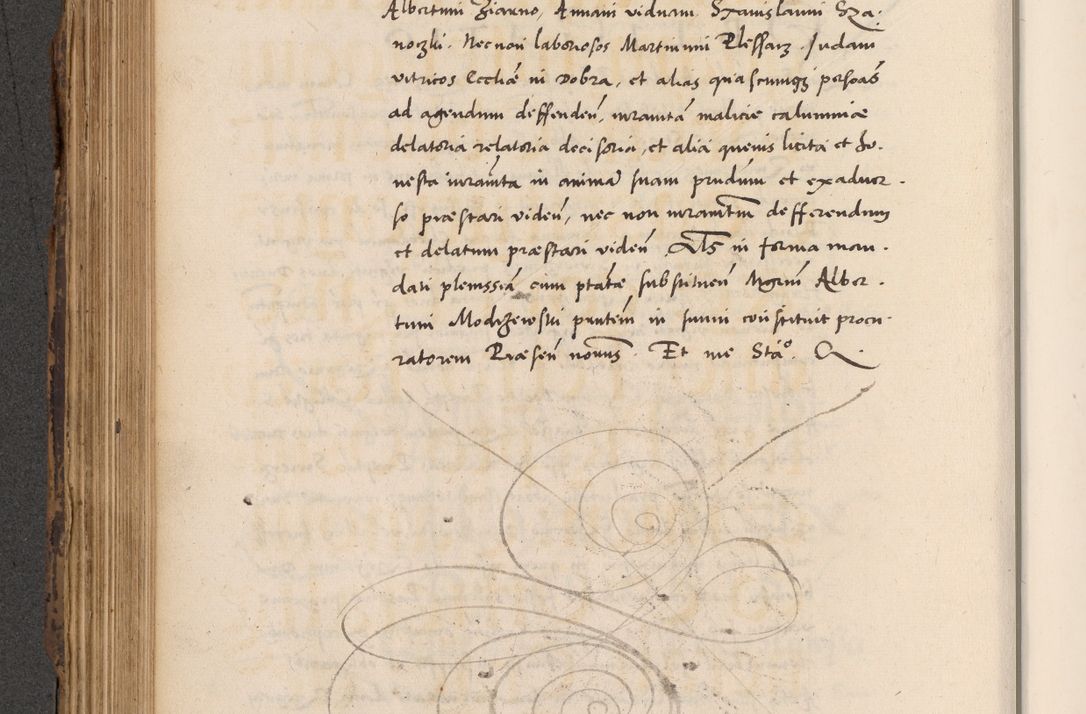 Albertum Ziarno, Annam viduam Stanislaum Sza.
noczki. Necnon laboriosos Martinum Plessarz. Judam
vitricos Eccliæ in Dobra, et alias quascunqz psoas
ad agendum deffenden, iuramta malicie calumniæ
delatoria relatoria decisoria, et alia quevis licita et ho.
nesta iuramta in animā suam prudum et exaduer.
so præstari viden, nec non iuramtum defferendum
et delatum præstari viden Als in forma man.
dati plenissia cum ptate substituen Mgrum Alber.
tum Modrzewski pntem in suum constituit procu.
ratorem Præsen notarius. Et me Sta°.